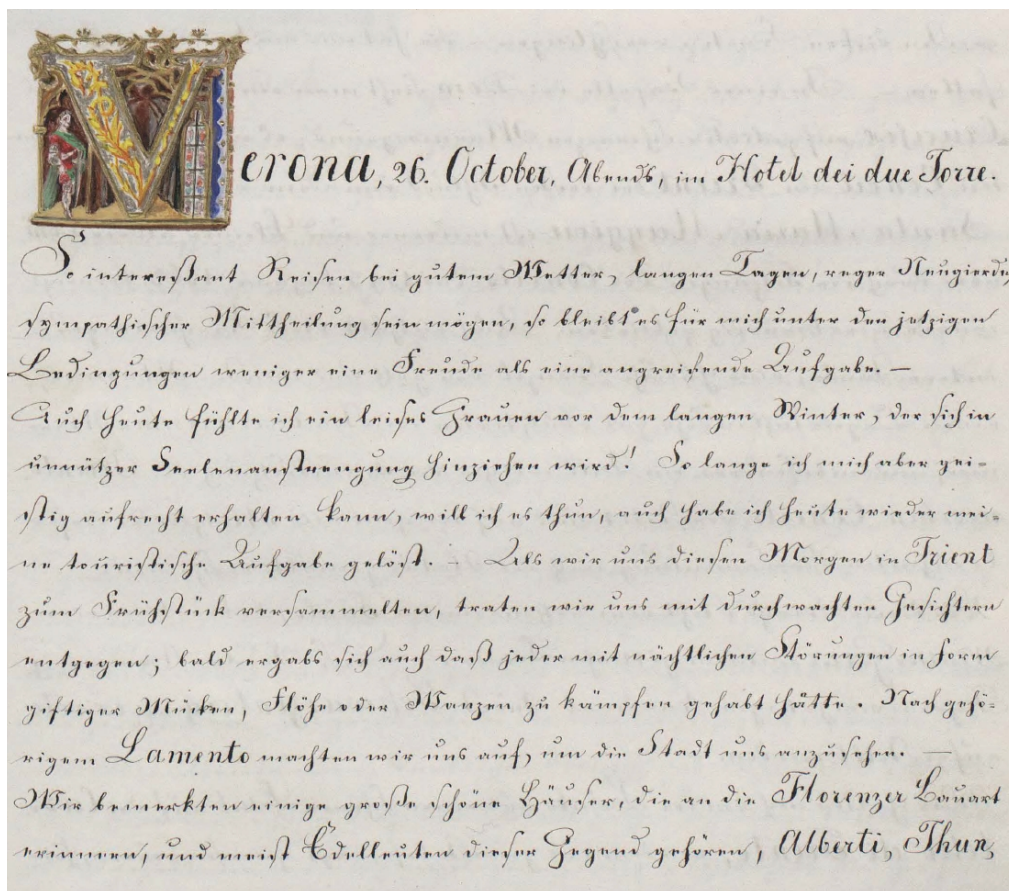 Verona, 26. October, Abends, im Hotel dei due Torre.
So interessant Reisen bei gutem Wetter, langen Tagen, reger Neugierde,
sympathischer Mittheilung sein mögen, so bleibt es für mich unter den jetzigen
Bedingungen weniger eine Freude als eine angreifende Aufgabe. —
Auch heute fühlte ich ein leises Grauen vor dem langen Winter, der sich in
unnützer Seelenanstrengung hinziehen wird! So lange ich mich aber gei-
stig aufrecht erhalten kann, will ich es thun, auch habe ich heute wieder mei-
ne touristische Aufgabe gelöst. – Als wir uns diesen Morgen in Trient
zum Frühstück versammelten, traten wir uns mit durchwachten Gesichtern
entgegen; bald ergabs sich auch daß jeder mit nächtlichen Störungen in Form
giftiger Mücken, Flöhe oder Wanzen zu kämpfen gehabt hätte. Nach gehö-
rigem Lamento machten wir uns auf, um die Stadt uns anzusehen. —
Wir bemerkten einige große schöne Häuser, die an die Florenzer Bauart
erinnern, und meist Edelleuten dieser Gegend gehören, Alberti, Thun,